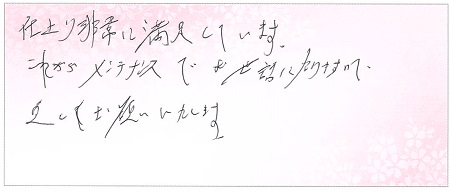 仕上り非常に満足しています。
これからメンテナンスでお世話になりますので、
宜しくお願いいたします